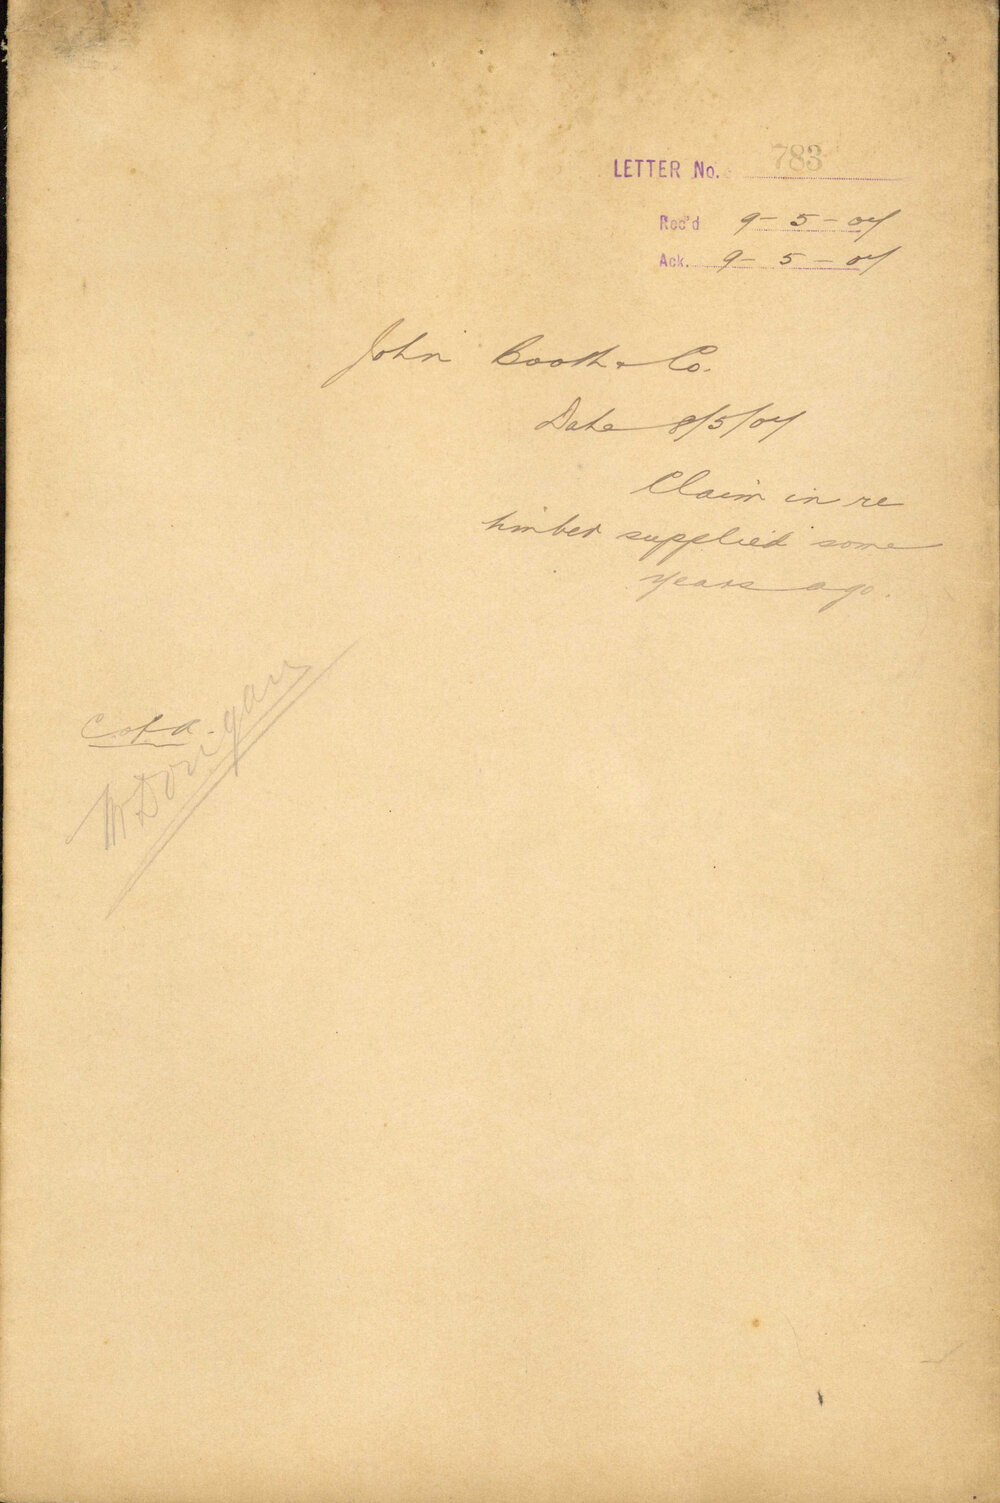 LETTER No. 783
Rec'd 9-5-07
Ack. 9-5-07
John Booth & Co.
Date 8/5/07
Claim in re
timber supplied some
years ago.
C of A.
Mr Dorigan